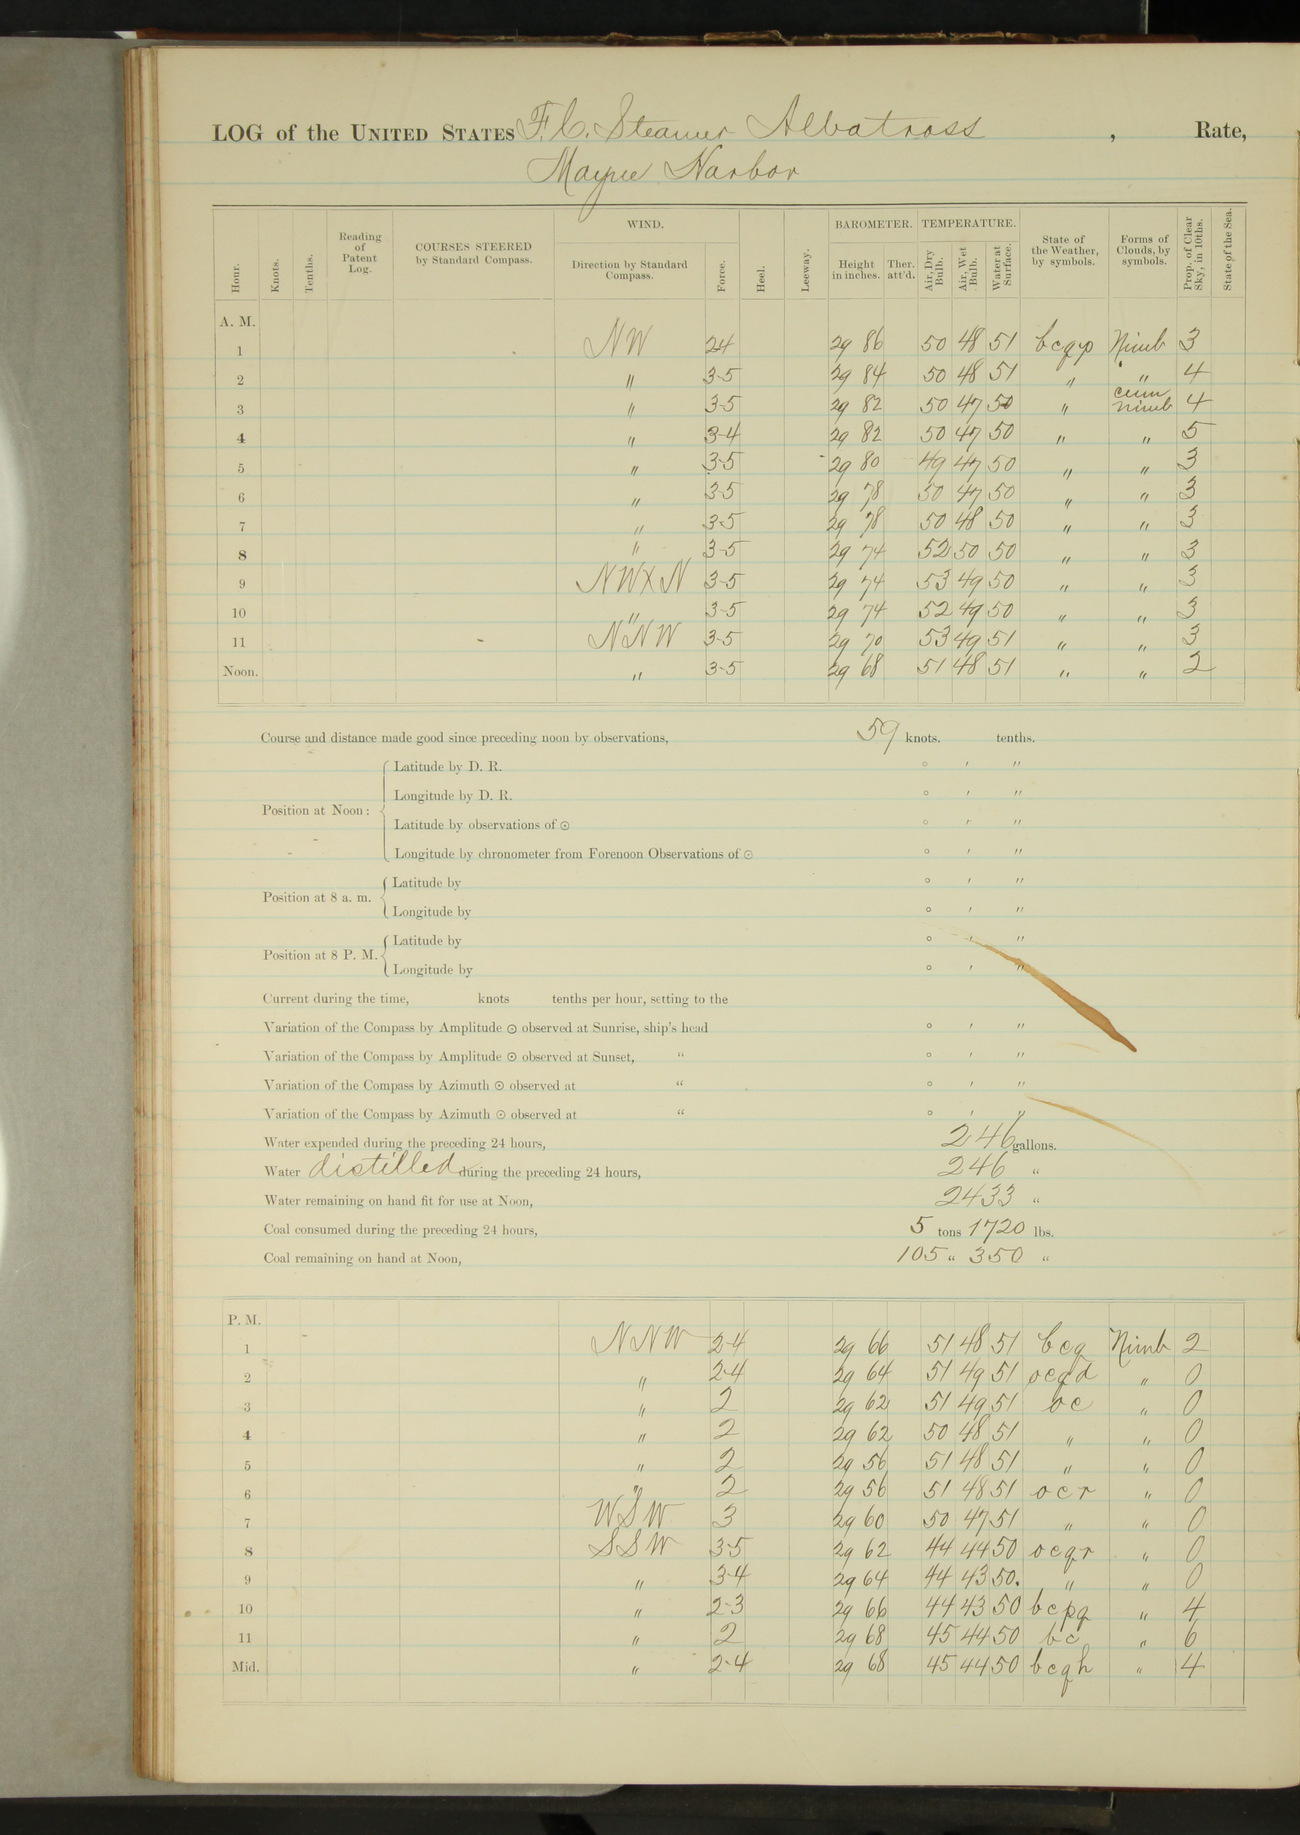 LOG of the UNITED STATES F.C. Steamer Albatross , Rate,
Mayne Harbor
Hour. Knots. Tenths. Reading of Patent Log. COURSES STEERED by Standard Compass. WIND. Direction by Standard Compass. Force. Heel. Leeway. BAROMETER. Height in inches. Ther. att'd. TEMPERATURE. Air, Dry Bulb. Air, Wet Bulb. Water at Surface. State of the Weather, by symbols. Forms of Clouds, by symbols. Prop. of Clear Sky, in 10ths. State of the Sea.
A. M.
1 NW 2-4 29 86 50 48 51 bcqp Nimb 3
2 " 3-5 29 84 50 48 51 " " 4
3 " 3-5 29 82 50 47 50 " cum nimb 4
4 " 3-4 29 82 50 47 50 " " 5
5 " 3-5 29 80 49 47 50 " " 3
6 " 3-5 29 78 50 47 50 " " 3
7 " 3-5 29 78 50 48 50 " " 3
8 " 3-5 29 74 52 50 50 " " 3
9 NWXN 3-5 29 74 53 49 50 " " 3
10 " 3-5 29 74 52 49 50 " " 3
11 NNW 3-5 29 70 53 49 51 " " 3
Noon. " 3-5 29 68 51 48 51 " " 2
Course and distance made good since preceding noon by observations, 59 knots. tenths.
Position at Noon: Latitude by D. R. ° ′ ″
Longitude by D. R. ° ′ ″
Latitude by observations of ☉ ° ′ ″
Longitude by chronometer from Forenoon Observations of ☉ ° ′ ″
Position at 8 a. m. Latitude by ° ′ ″
Longitude by ° ′ ″
Position at 8 P. M. Latitude by ° ′ ″
Longitude by ° ′ ″
Current during the time, knots tenths per hour, setting to the
Variation of the Compass by Amplitude ☉ observed at Sunrise, ship's head ° ′ ″
Variation of the Compass by Amplitude ☉ observed at Sunset, " ° ′ ″
Variation of the Compass by Azimuth ☉ observed at " ° ′ ″
Variation of the Compass by Azimuth ☉ observed at " ° ′ ″
Water expended during the preceding 24 hours, 246 gallons.
Water distilled during the preceding 24 hours, 246 "
Water remaining on hand fit for use at Noon, 2433 "
Coal consumed during the preceding 24 hours, 5 tons 1720 lbs.
Coal remaining on hand at Noon, 105 " 350 "
P. M.
1 NNW 2-4 29 66 51 48 51 bcq Nimb 2
2 " 2-4 29 64 51 49 51 ocqd " 0
3 " 2 29 62 51 49 51 oc " 0
4 " 2 29 62 50 48 51 " " 0
5 " 2 29 56 51 48 51 " " 0
6 " 2 29 56 51 48 51 ocr " 0
7 WSW 3 29 60 50 47 51 " " 0
8 SSW 3-5 29 62 44 44 50 ocqr " 0
9 " 3-4 29 64 44 43 50. " " 0
10 " 2-3 29 66 44 43 50 bcpq " 4
11 " 2 29 68 45 44 50 bc " 6
Mid. " 2-4 29 68 45 44 50 bcqh " 4